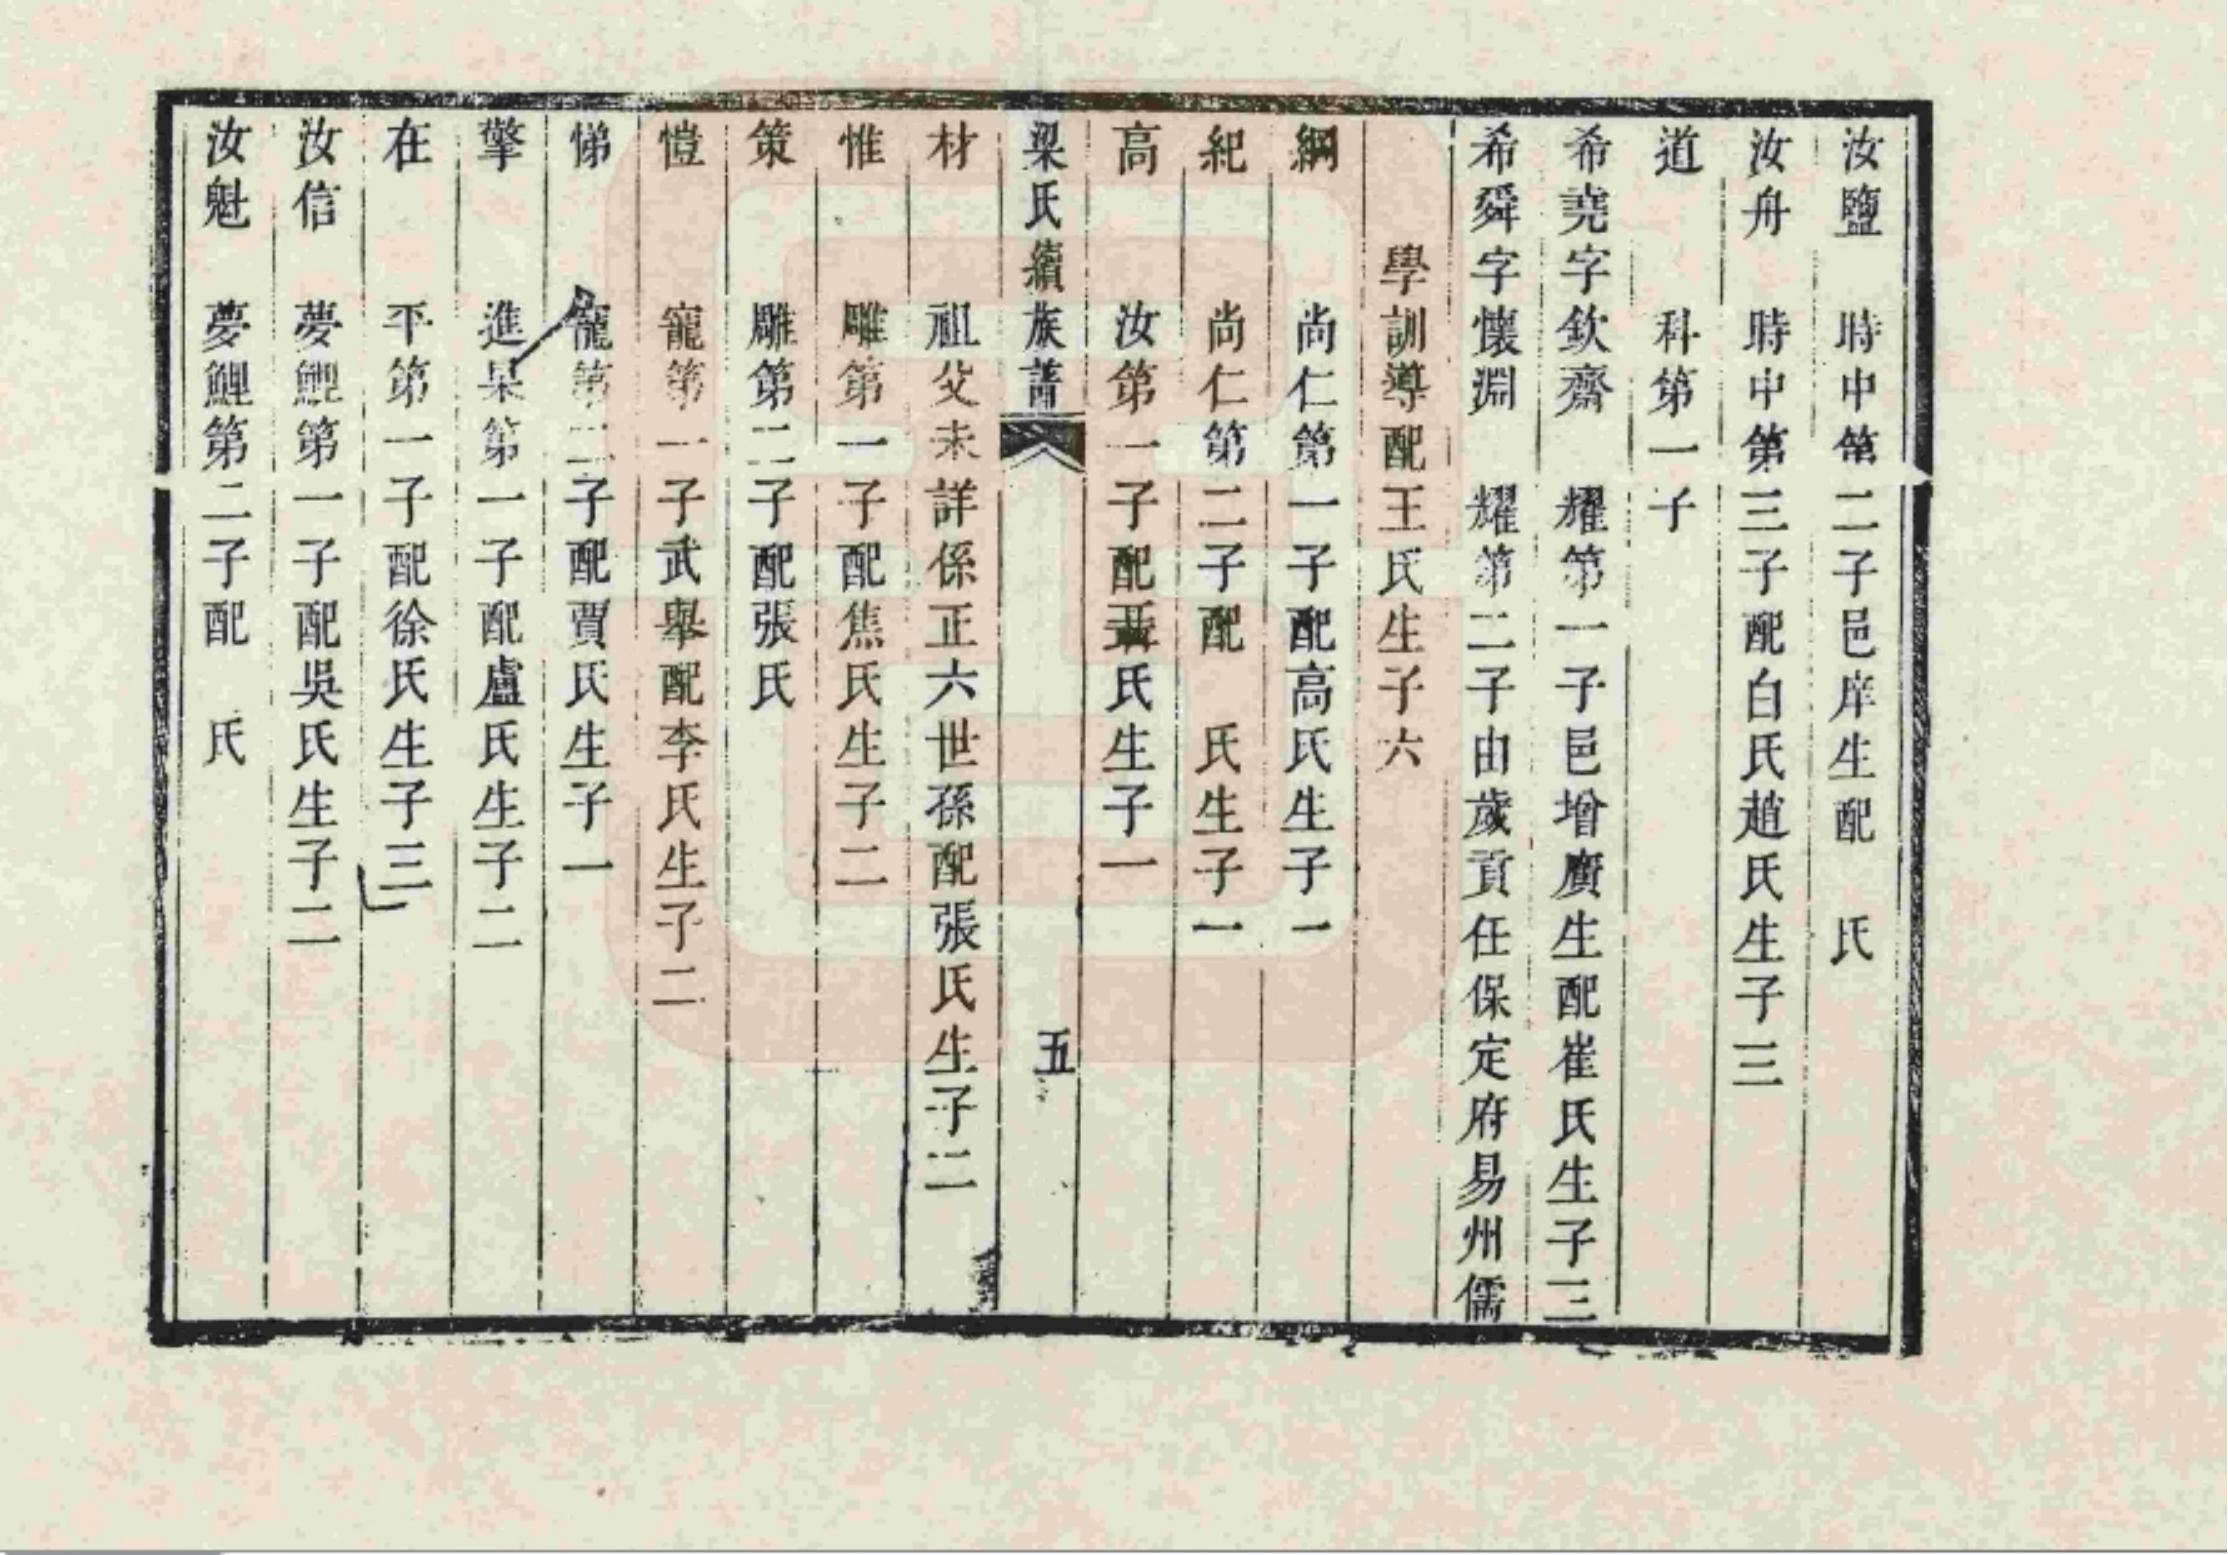 汝鹽　時中第二子邑庠生配　氏
汝舟　時中第三子配白氏趙氏生子三
道　科第一子
希堯字欽齋　耀第一子邑增廣生配崔氏生子三
希舜字懷淵　耀第二子由歲貢任保定府易州儒
學訓導配王氏生子六
綱　尚仁第一子配高氏生子一
紀　尚仁第二子配　氏生子一
高　汝第一子配聶氏生子一
梁氏續族譜　五
材　祖父未詳係正六世孫配張氏生子二
惟　雕第一子配焦氏生子二
策　雕第二子配張氏
愷　寵第一子武舉配李氏生子二
悌　寵第二子配賈氏生子一
擎　進杲第一子配盧氏生子二
在　平第一子配徐氏生子三
汝信　夢鯉第一子配吳氏生子二
汝魁　夢鯉第二子配　氏